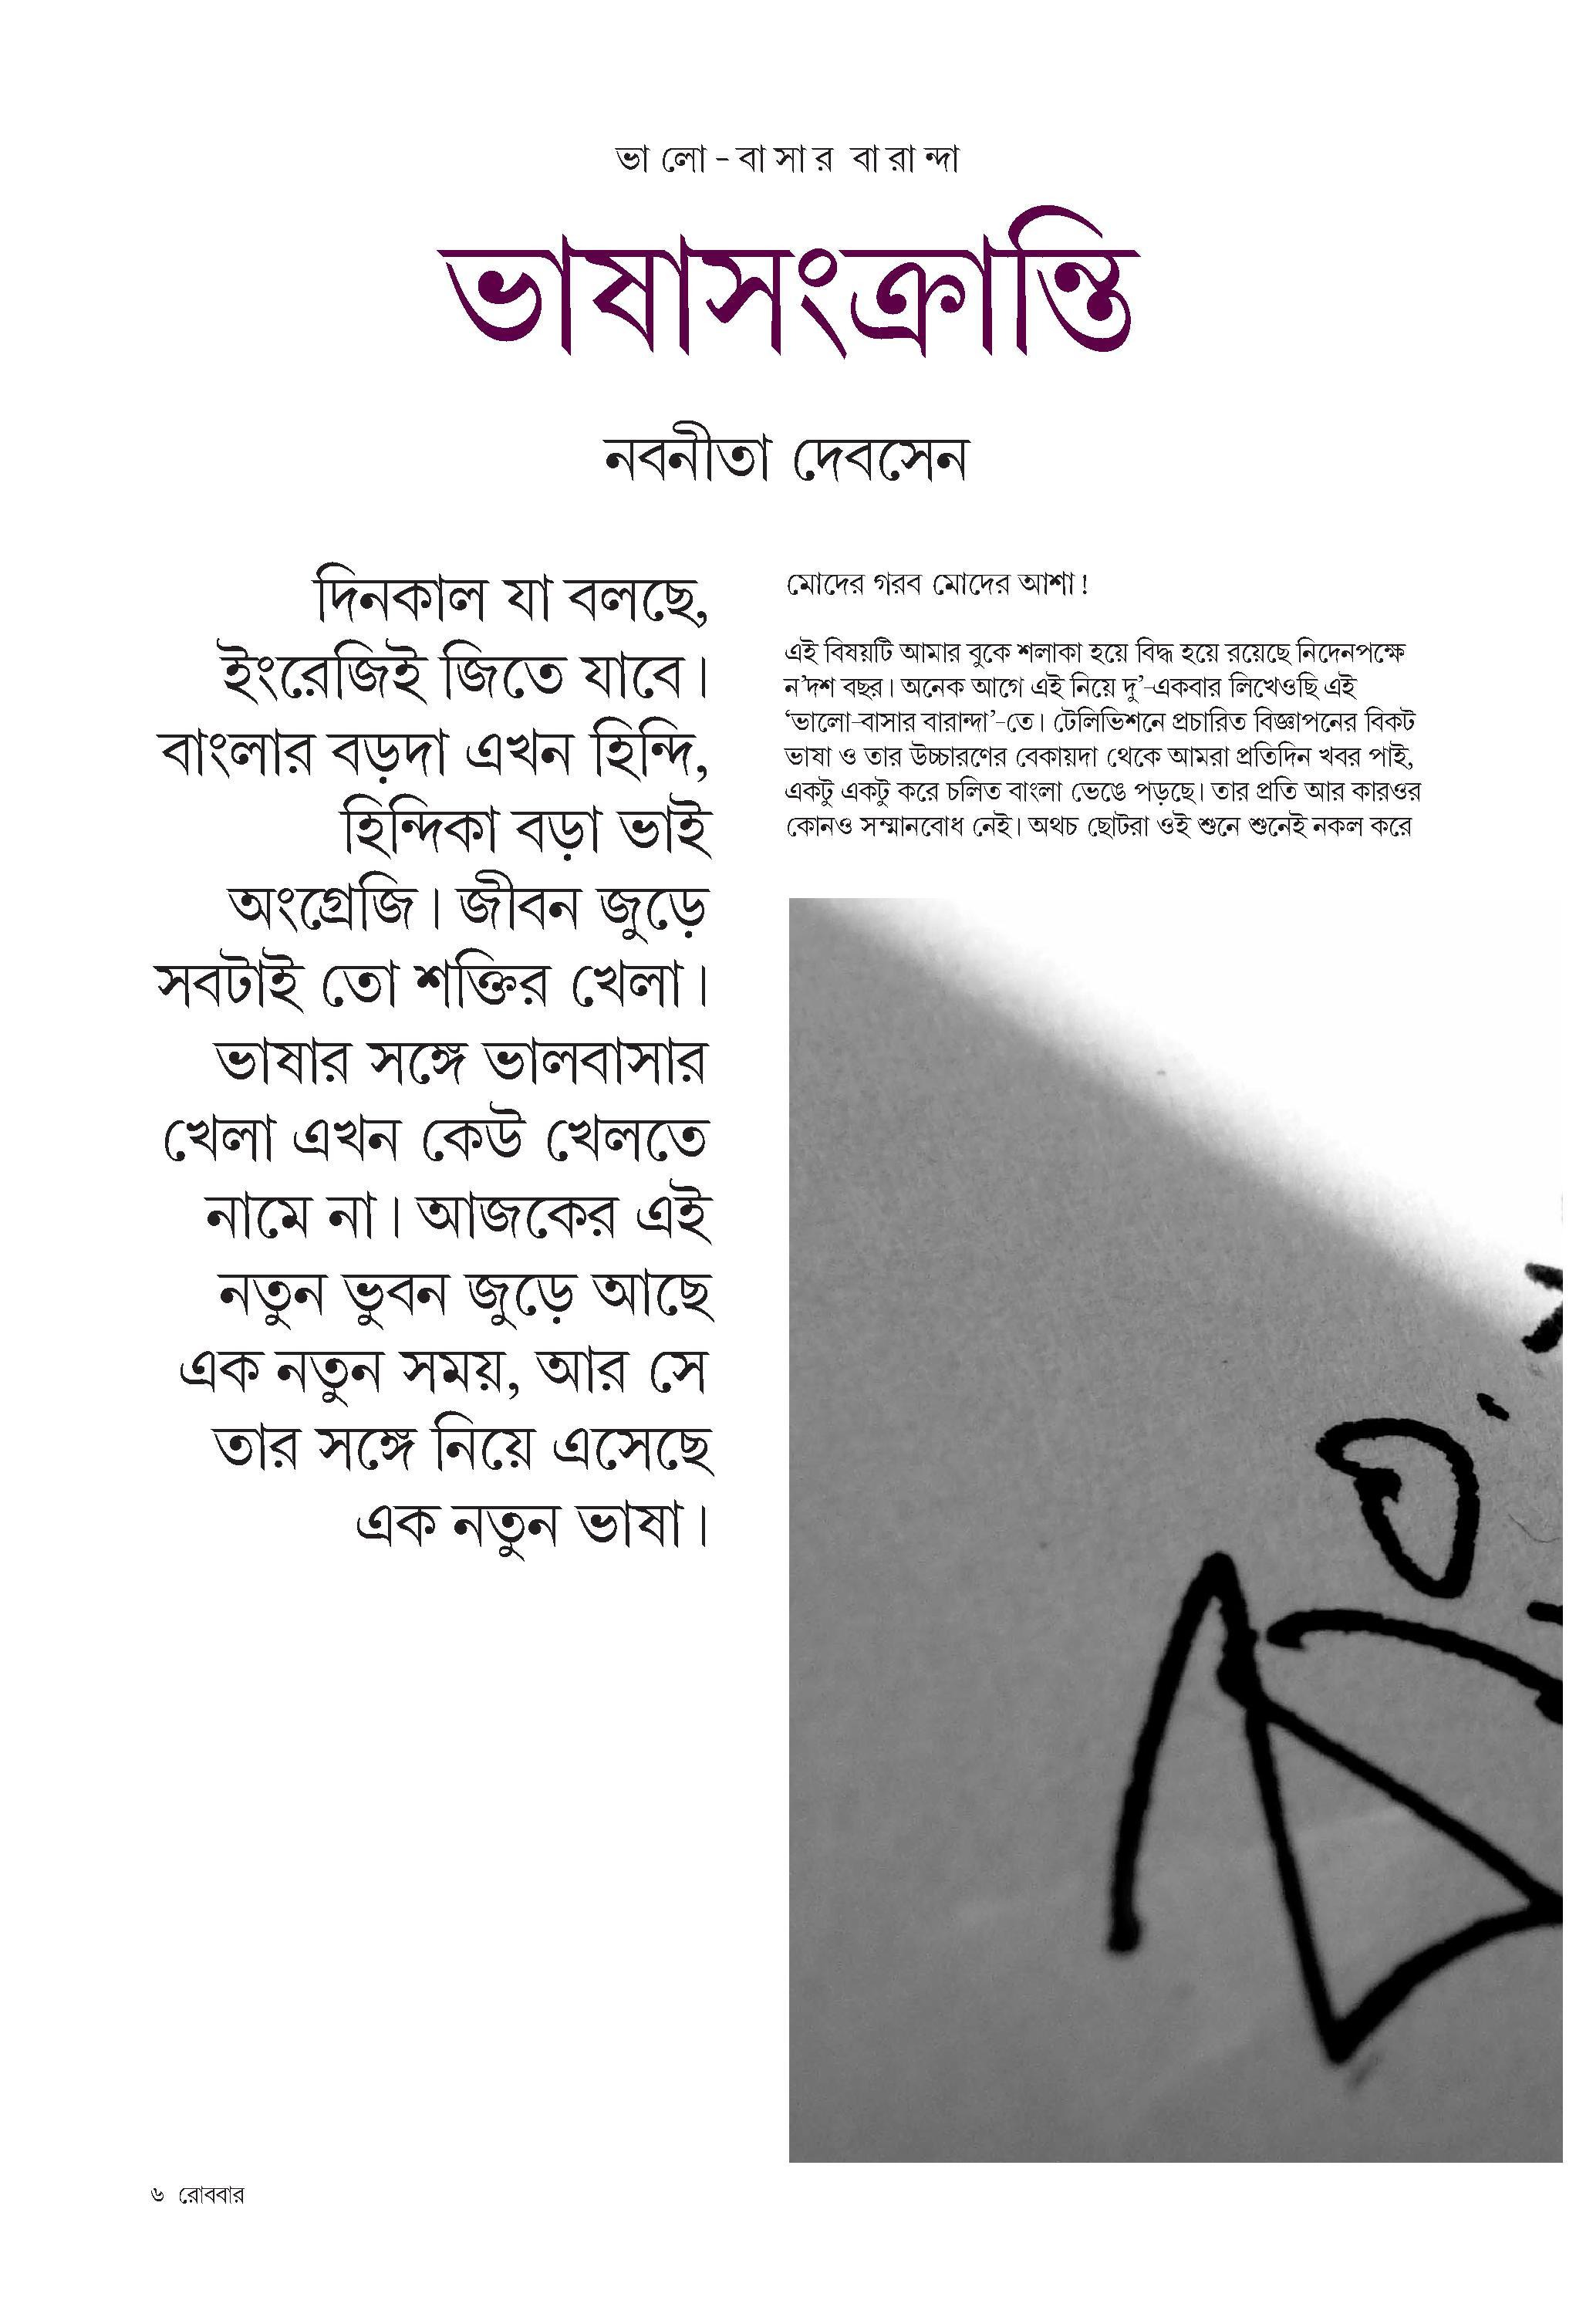 ভালো-বাসার বারান্দা
ভাষাসংক্রান্তি
নবনীতা দেবসেন
দিনকাল যা বলছে,
ইংরেজিই জিতে যাবে।
বাংলার বড়দা এখন হিন্দি,
হিন্দিকা বড়া ভাই
অংগ্রেজি। জীবন জুড়ে
সবটাই তো শক্তির খেলা।
ভাষার সঙ্গে ভালবাসার
খেলা এখন কেউ খেলতে
নামে না। আজকের এই
নতুন ভুবন জুড়ে আছে
এক নতুন সময়, আর সে
তার সঙ্গে নিয়ে এসেছে
এক নতুন ভাষা।
মোদের গরব মোদের আশা!
এই বিষয়টি আমার বুকে শলাকা হয়ে বিদ্ধ হয়ে রয়েছে নিদেনপক্ষে
ন’দশ বছর। অনেক আগে এই নিয়ে দু’-একবার লিখেওছি এই
‘ভালো-বাসার বারান্দা’-তে। টেলিভিশনে প্রচারিত বিজ্ঞাপনের বিকট
ভাষা ও তার উচ্চারণের বেকায়দা থেকে আমরা প্রতিদিন খবর পাই,
একটু একটু করে চলিত বাংলা ভেঙে পড়ছে। তার প্রতি আর কারওর
কোনও সম্মানবোধ নেই। অথচ ছোটরা ওই শুনে শুনেই নকল করে
৬ রোববার